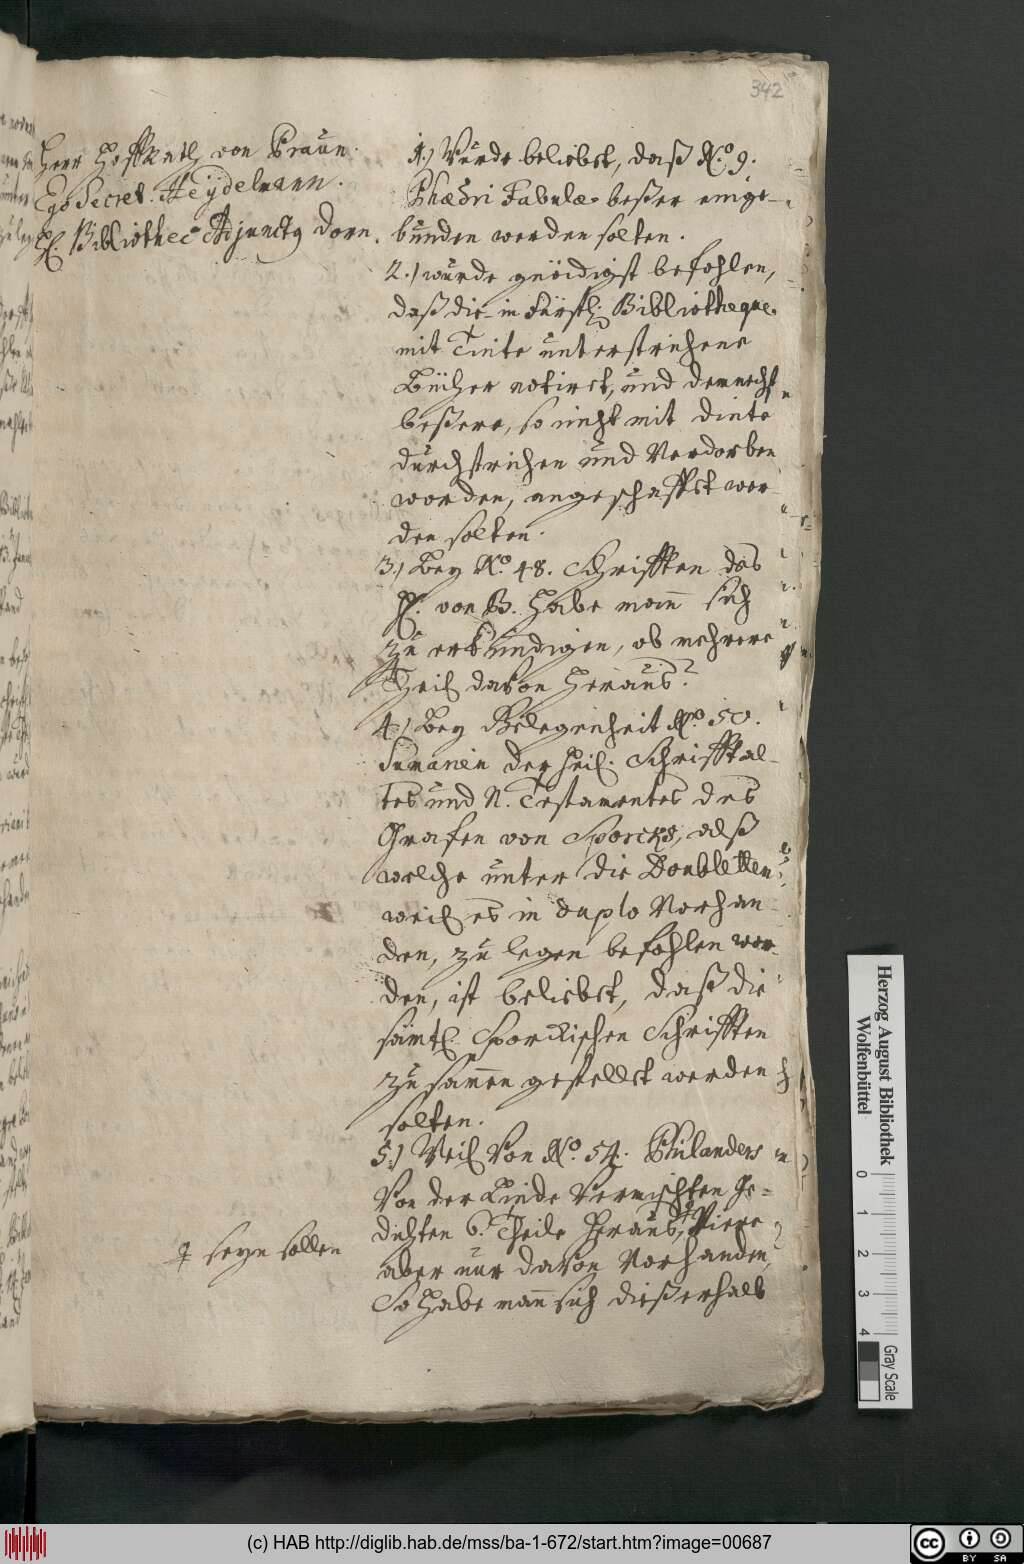 342
Herr Hoffrath von Praün.
Ego Secret. Heÿdelmann.
H. Bibliothec Adjunctg Dorn.
1.) Würde beliebet, daß No. 9.
Phædri Fabulæ beßer einge-
bunden werden solten.
2.) wurde gnädigst befohlen,
daß die in Fürstl. Bibliotheque
mit Tinte unterstrichene
Bücher notiret, und demnechst
beßere, so nicht mit dinte
durchstrichen und Verdorben
worden, angeschaffet wer-
den solten.
3.) Bey No. 48. Schrifften des
H. von B. habe man sich
zu erkundigen, ob mehrere
Theil davon heraus?
4.) Bey Gelegenheit No. 50.
der Heil. Schrifft al-
tes und N. Testamentes des
Grafen von Sporcks, alß
welche unter die Doubletten
weil es in duplo Vorhan-
den, zu legen befohlen wor-
den, ist beliebet, daß die
sämtl. Sporckischen Schrifften
zusamen gestellet werden
solten.
5.) Weil Von No. 54. Philanders
Von der Linde Vermischten Ge-
dichten 6. Theile heraus, Viere
aber nur davon Vorhanden,
So habe man sich dießerhalb
seyn sollen
Herzog August Bibliothek
Wolfenbüttel
0 1 2 3 4
Gray Scale
(c) HAB http://diglib.hab.de/mss/ba-1-672/start.htm?image=00687
cc BY SA